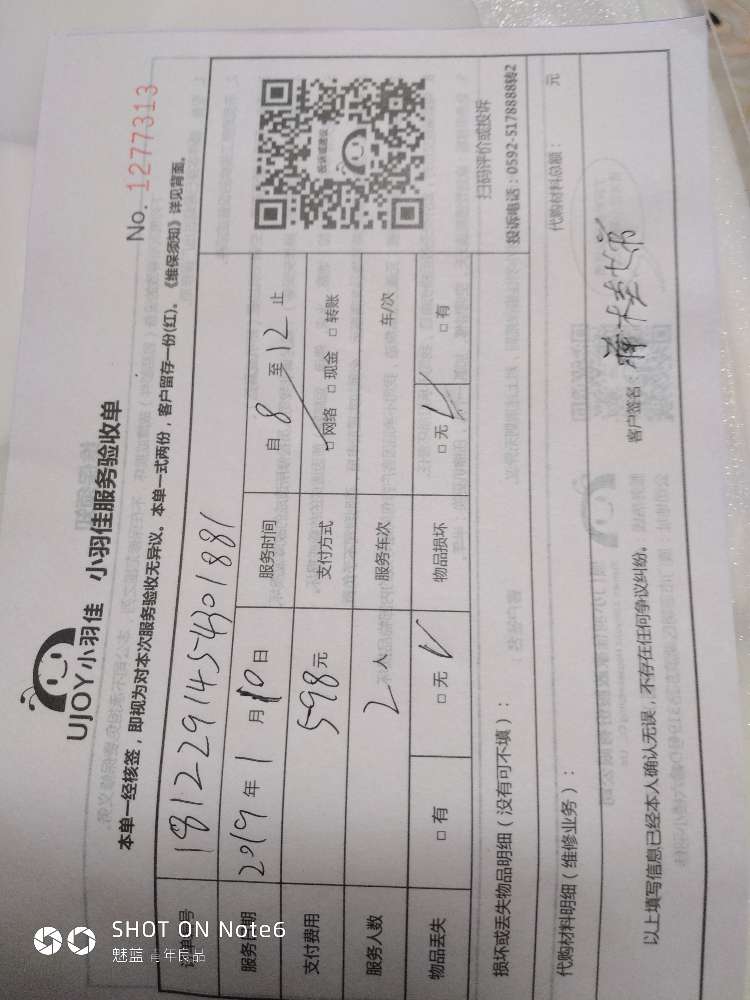 UJOY小羽佳 小羽佳服务验收单
No. 1277313
本单一经核签，即视为对本次服务验收无异议。本单一式两份，客户留存一份(红)。《维保须知》详见背面。
订单号 1812291454301881
服务日期 2019年1月10日 服务时间 自8至12止
支付费用 598元 支付方式 □网络 □现金 □转账
服务人数 2人 服务车次 车/次
物品丢失 □有 □无 √ 物品损坏 □无 √ □有
投诉或建议
扫码评价或投诉
投诉电话：0592-5178888转2
损坏或丢失物品明细（没有可不填）：
代购材料明细（维修业务）：
代购材料总额： 元
以上填写信息已经本人确认无误，不存在任何争议纠纷。
客户签名：
SHOT ON Note6
魅蓝 青年良品